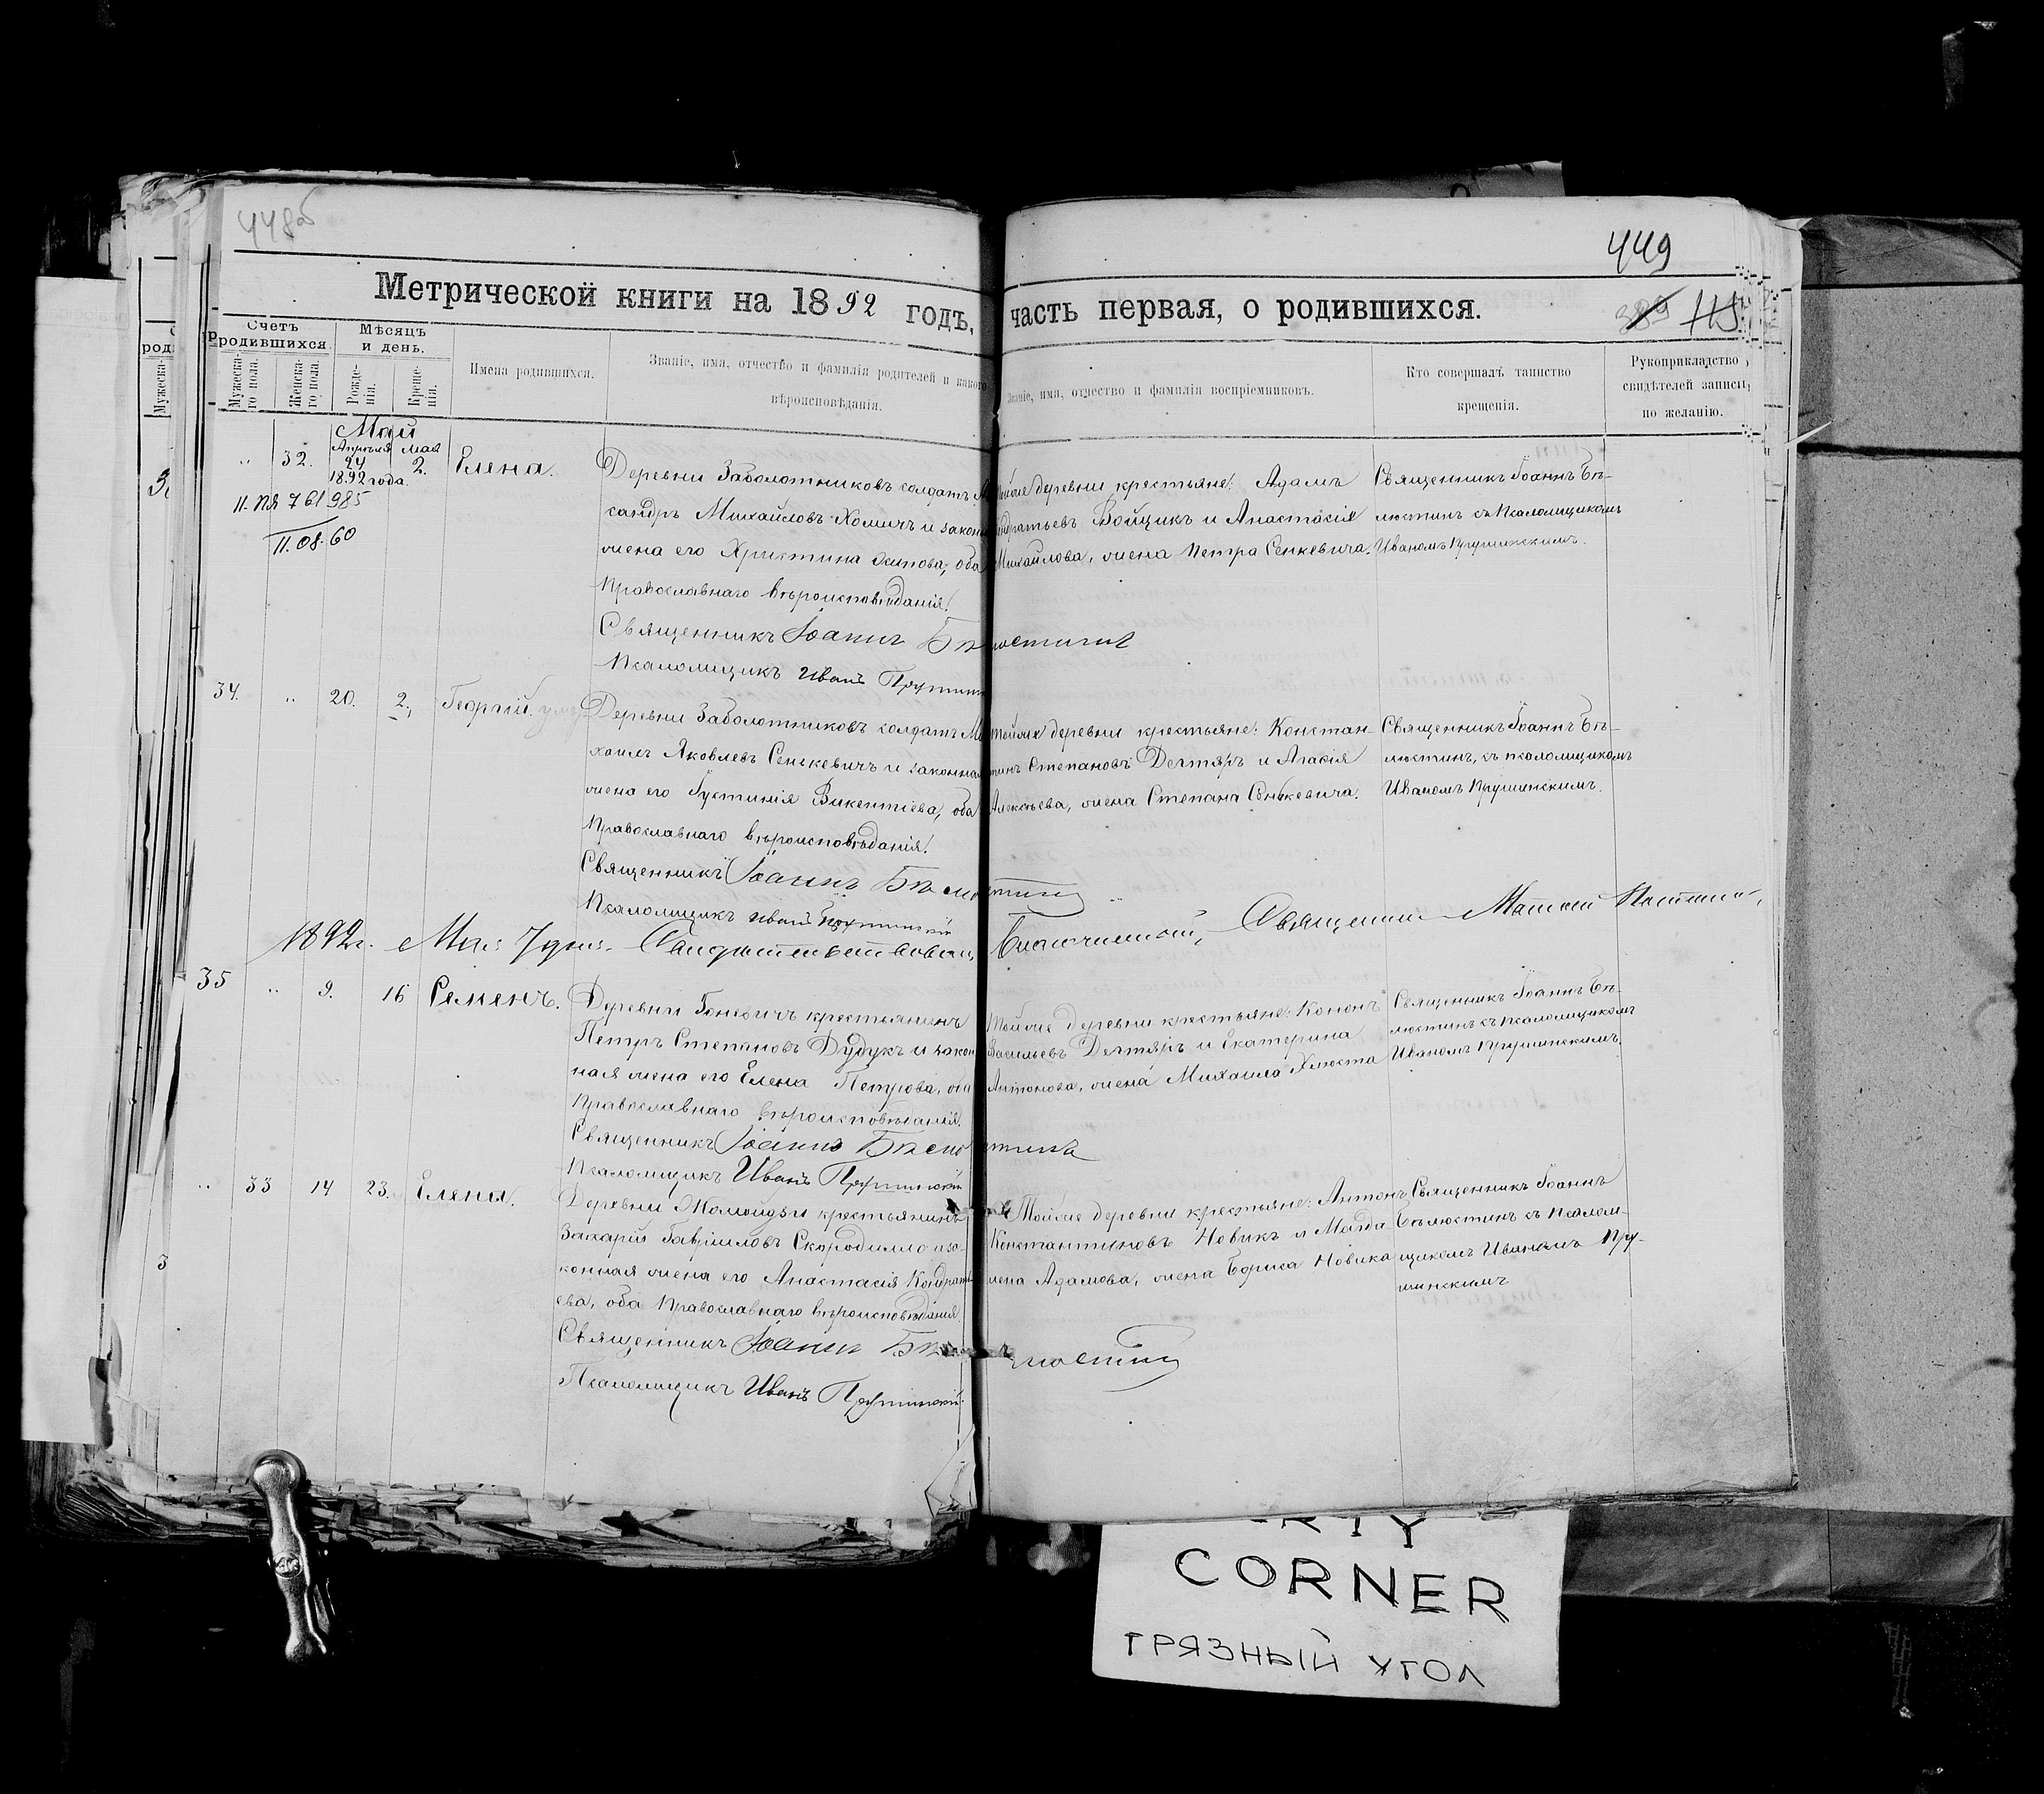 448об
449
Метрической книги на 1892 годъ, часть первая, о родившихся.
389 115
Счетъ родившихся.
Мѣсяцъ и день.
Мужеска-го пола.
Женска-го пола.
Рожде-нія.
Креще-нія.
Имена родившихся.
Званіе, имя, отчество и фамилія родителей и какого
вѣроисповѣданія.
Званіе, имя, отчество и фамилія воспріемниковъ.
Кто совершалъ таинство
крещенія.
Рукоприкладство
свидѣтелей записи
по желанію.
Май
Апрѣля Мая
„ 32. 24 2. Елена.
1892 года.
II-ПЯ 761985
11.08.60
Деревни Заболотниковъ солдатъ
сандръ Михайловъ Хомичъ и закон
жена его Христина Осипова, оба
Православнаго вѣроисповѣданія.
Священникъ Іоаннъ Бѣлюстинъ
Псаломщикъ Иванъ
Тойже деревни крестьяне: Адамъ
Кондратьевъ Войщикъ и Анастасія
Михайлова, жена Петра Сенкевича.
Священникъ Іоаннъ Бѣ-
люстинъ съ Псаломщикомъ
Иваномъ Прушинскимъ.
34. „ 20. 2. Георгій.
Деревни Заболотниковъ солдатъ Ми
хаилъ Яковлевъ Сенкевичъ и законная
жена его Іустинія Викентіева, оба
Православнаго вѣроисповѣданія.
Священникъ Іоаннъ Бѣлюстинъ
Псаломщикъ Иванъ Прушинскій
Тойже деревни крестьяне: Констан-
тинъ Степановъ Дегтярь и Агафія
Алексѣева, жена Степана Сенкевича.
Священникъ Іоаннъ Бѣ-
люстинъ, съ псаломщикомъ
Иваномъ Прушинскимъ.
1892г. Мая 7 дня. Свидѣтельствовалъ Благочинный, Священникъ
35 „ 9. 16 Семенъ.
Деревни Гоневичъ крестьянинъ
Петръ Степановъ Дудукъ и закон
ная жена его Елена Петрова, оба
Православнаго вѣроисповѣданія.
Священникъ Іоаннъ Бѣлюстинъ
Псаломщикъ Иванъ Прушинскій
Тойже деревни крестьяне: Кононъ
Васильевъ Дегтярь и Екатерина
Антонова, жена Михаила Хлюста
Священникъ Іоаннъ Бѣ-
люстинъ съ псаломщикомъ
Иваномъ Прушинскимъ.
„ 33 14 23. Елена.
Деревни Жомойдзи крестьянинъ
Захарій Гавріиловъ Скородилло и за-
конная жена его Анастасія Кондрать
ева, оба Православнаго вѣроисповѣданія.
Священникъ Іоаннъ Бѣлюстинъ
Псаломщикъ Иванъ Прушинскій.
Тойже деревни крестьяне: Антонъ
Константиновъ Новикъ и Магда
лена Адамова, жена Бориса Новика
Священникъ Іоаннъ
Бѣлюстинъ съ Псалом-
щикомъ Иваномъ Пру-
шинскимъ
CORNER
ГРЯЗНЫЙ УГОЛ